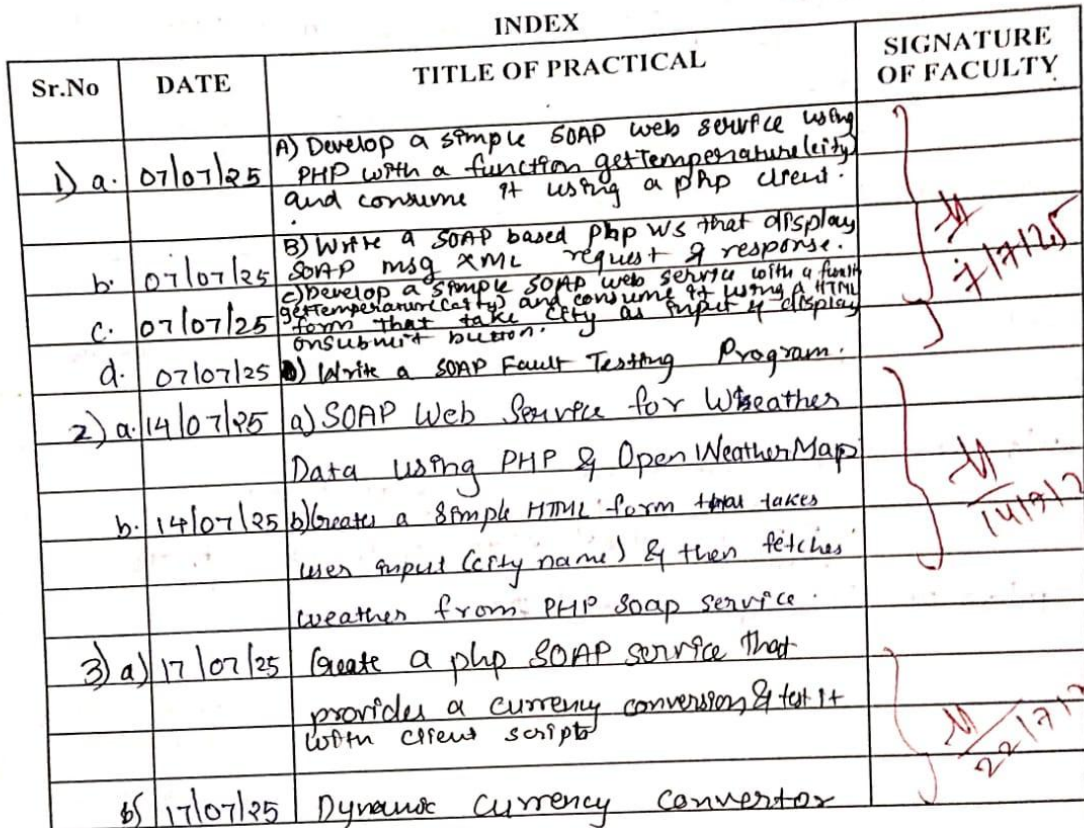 INDEX
Sr.No DATE TITLE OF PRACTICAL SIGNATURE OF FACULTY
A) Develop a simple SOAP web service using
1) a. 07/07/25 PHP with a function getTemperature(city)
and consume it using a php client.
B) Write a SOAP based php WS that display
b. 07/07/25 SOAP msg XML request & response.
C) Develop a simple SOAP web service with a
getTemperature(city) and consume it using a HTML
c. 07/07/25 form that take city as input & display
onsubmit button.
d. 07/07/25 D) Write a SOAP Fault Testing Program.
7/7/25
2) a. 14/07/25 a) SOAP Web Service for Weather
Data using PHP & OpenWeatherMap
14/7/2
b. 14/07/25 b) Creates a simple HTML form that takes
user input (city name) & then fetches
weather from PHP Soap service.
3) a) 17/07/25 Create a php SOAP service that
provides a currency conversion & test it
with client scripts
22/7/2
b) 17/07/25 Dynamic currency convertor